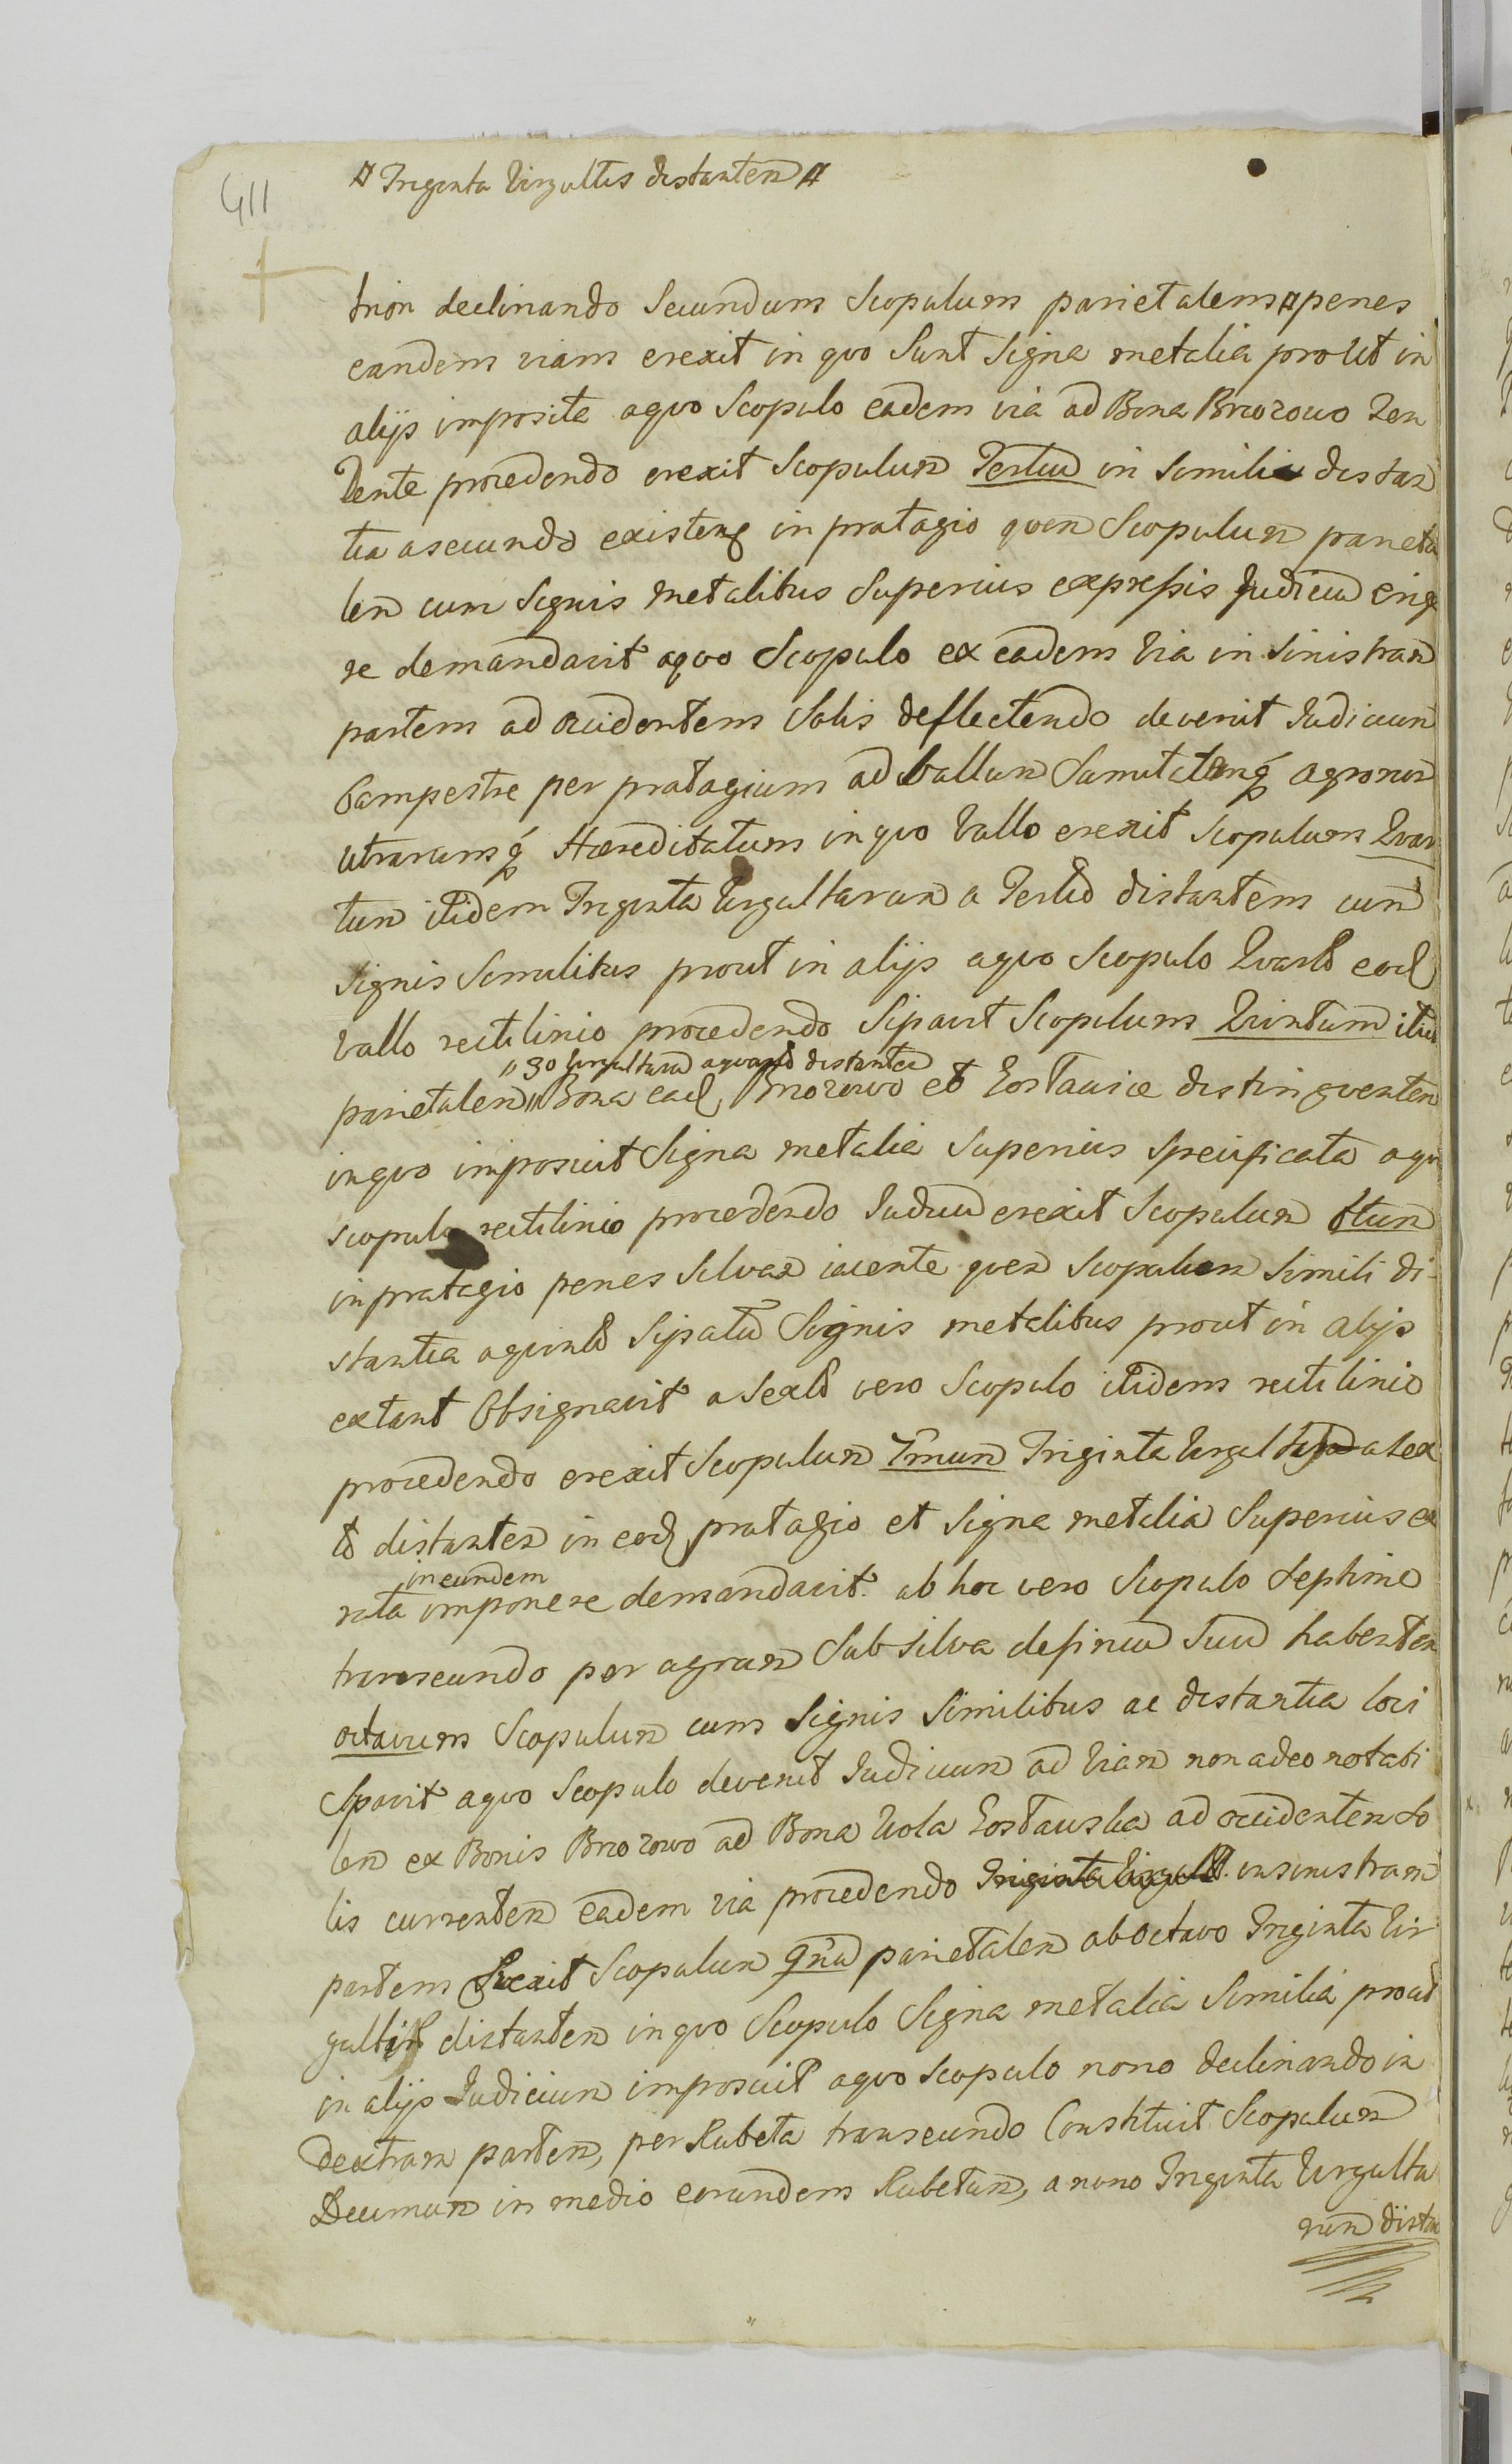 411
# Triginta Virgultis distantem #
trion declinando Secundum Scopulum parietalem # penes
eandem viam erexit in quo Sunt Signa metalia prout in
alijs imposita aquo Scopulo eadem via ad Bona Brzozowo Ten
dente procedendo erexit Scopulum Tertiu in Simili distan
tia asecundo existenē in pratagio quem Scopulum parieta
lem cum Signis metalibus Superius expressis Judiciu erige
re demandavit aquo Scopulo ex eadem via in Sinistram
partem ad occidentem Solis deflectendo devenit Judicium
Campestre per pratagium ad Vallum Sumitatemq́ agrorum
utrarumq́ Haereditatum inquo Vallo erexit Scopulum Quar
tum itidem Triginta Virgultarum a Tertio distantem cum
Signis Similibus prout in alijs aquo Scopulo Quarto eod
Vallo rectilinio procedendo Sipavit Scopulum Quintum itid
" 30 Virgultaru aquarto distantem
parietalem " Bona ead Brzozowo et Gostawice distinguentem
inquo imposuit Signa metalia Superius Specificata aqu
scopulo rectilinio procedendo Judiciu erexit Scopulum 6tum
inpratagio penes Silvam iacente quem Scopulum Simili di-
stantia aquinto Sipatū Signis metalibus prout in alijs
extant Obsignavit a Sexto vero Scopulo itidem rectilinio
procedendo erexit Scopulum 7mum Triginta Virgultaru a Sex
to distantem in eod pratagio et Signa metalia Superius ex
in eundem
rata imponere demandavit. ab hoc vero Scopulo Septimo
transeundo per agrum Sub Silva definiu Suu habentem
octavum Scopulum cum Signis Similibus ac distantia loci
Sipavit aquo Scopulo devenit Judicium ad viam non adeo notabi
lem ex Bonis Brzozowo ad Bona Wola Gostawska ad occidentem So
lis currentem eadem via procedendo Triginta Virgult. insinistram
partem Erexit Scopulum 9nu parietalem ab octavo Triginta Vir
gultis distantem inquo Scopulo Signa metalia Similia prout
in alijs Judicium imposuit aquo Scopulo nono declinando in
dextram partem, per Rubeta transeundo Constituit Scopulum
Decimum in medio eorundem Rubetum, a nono Triginta Virgulta
rum distan